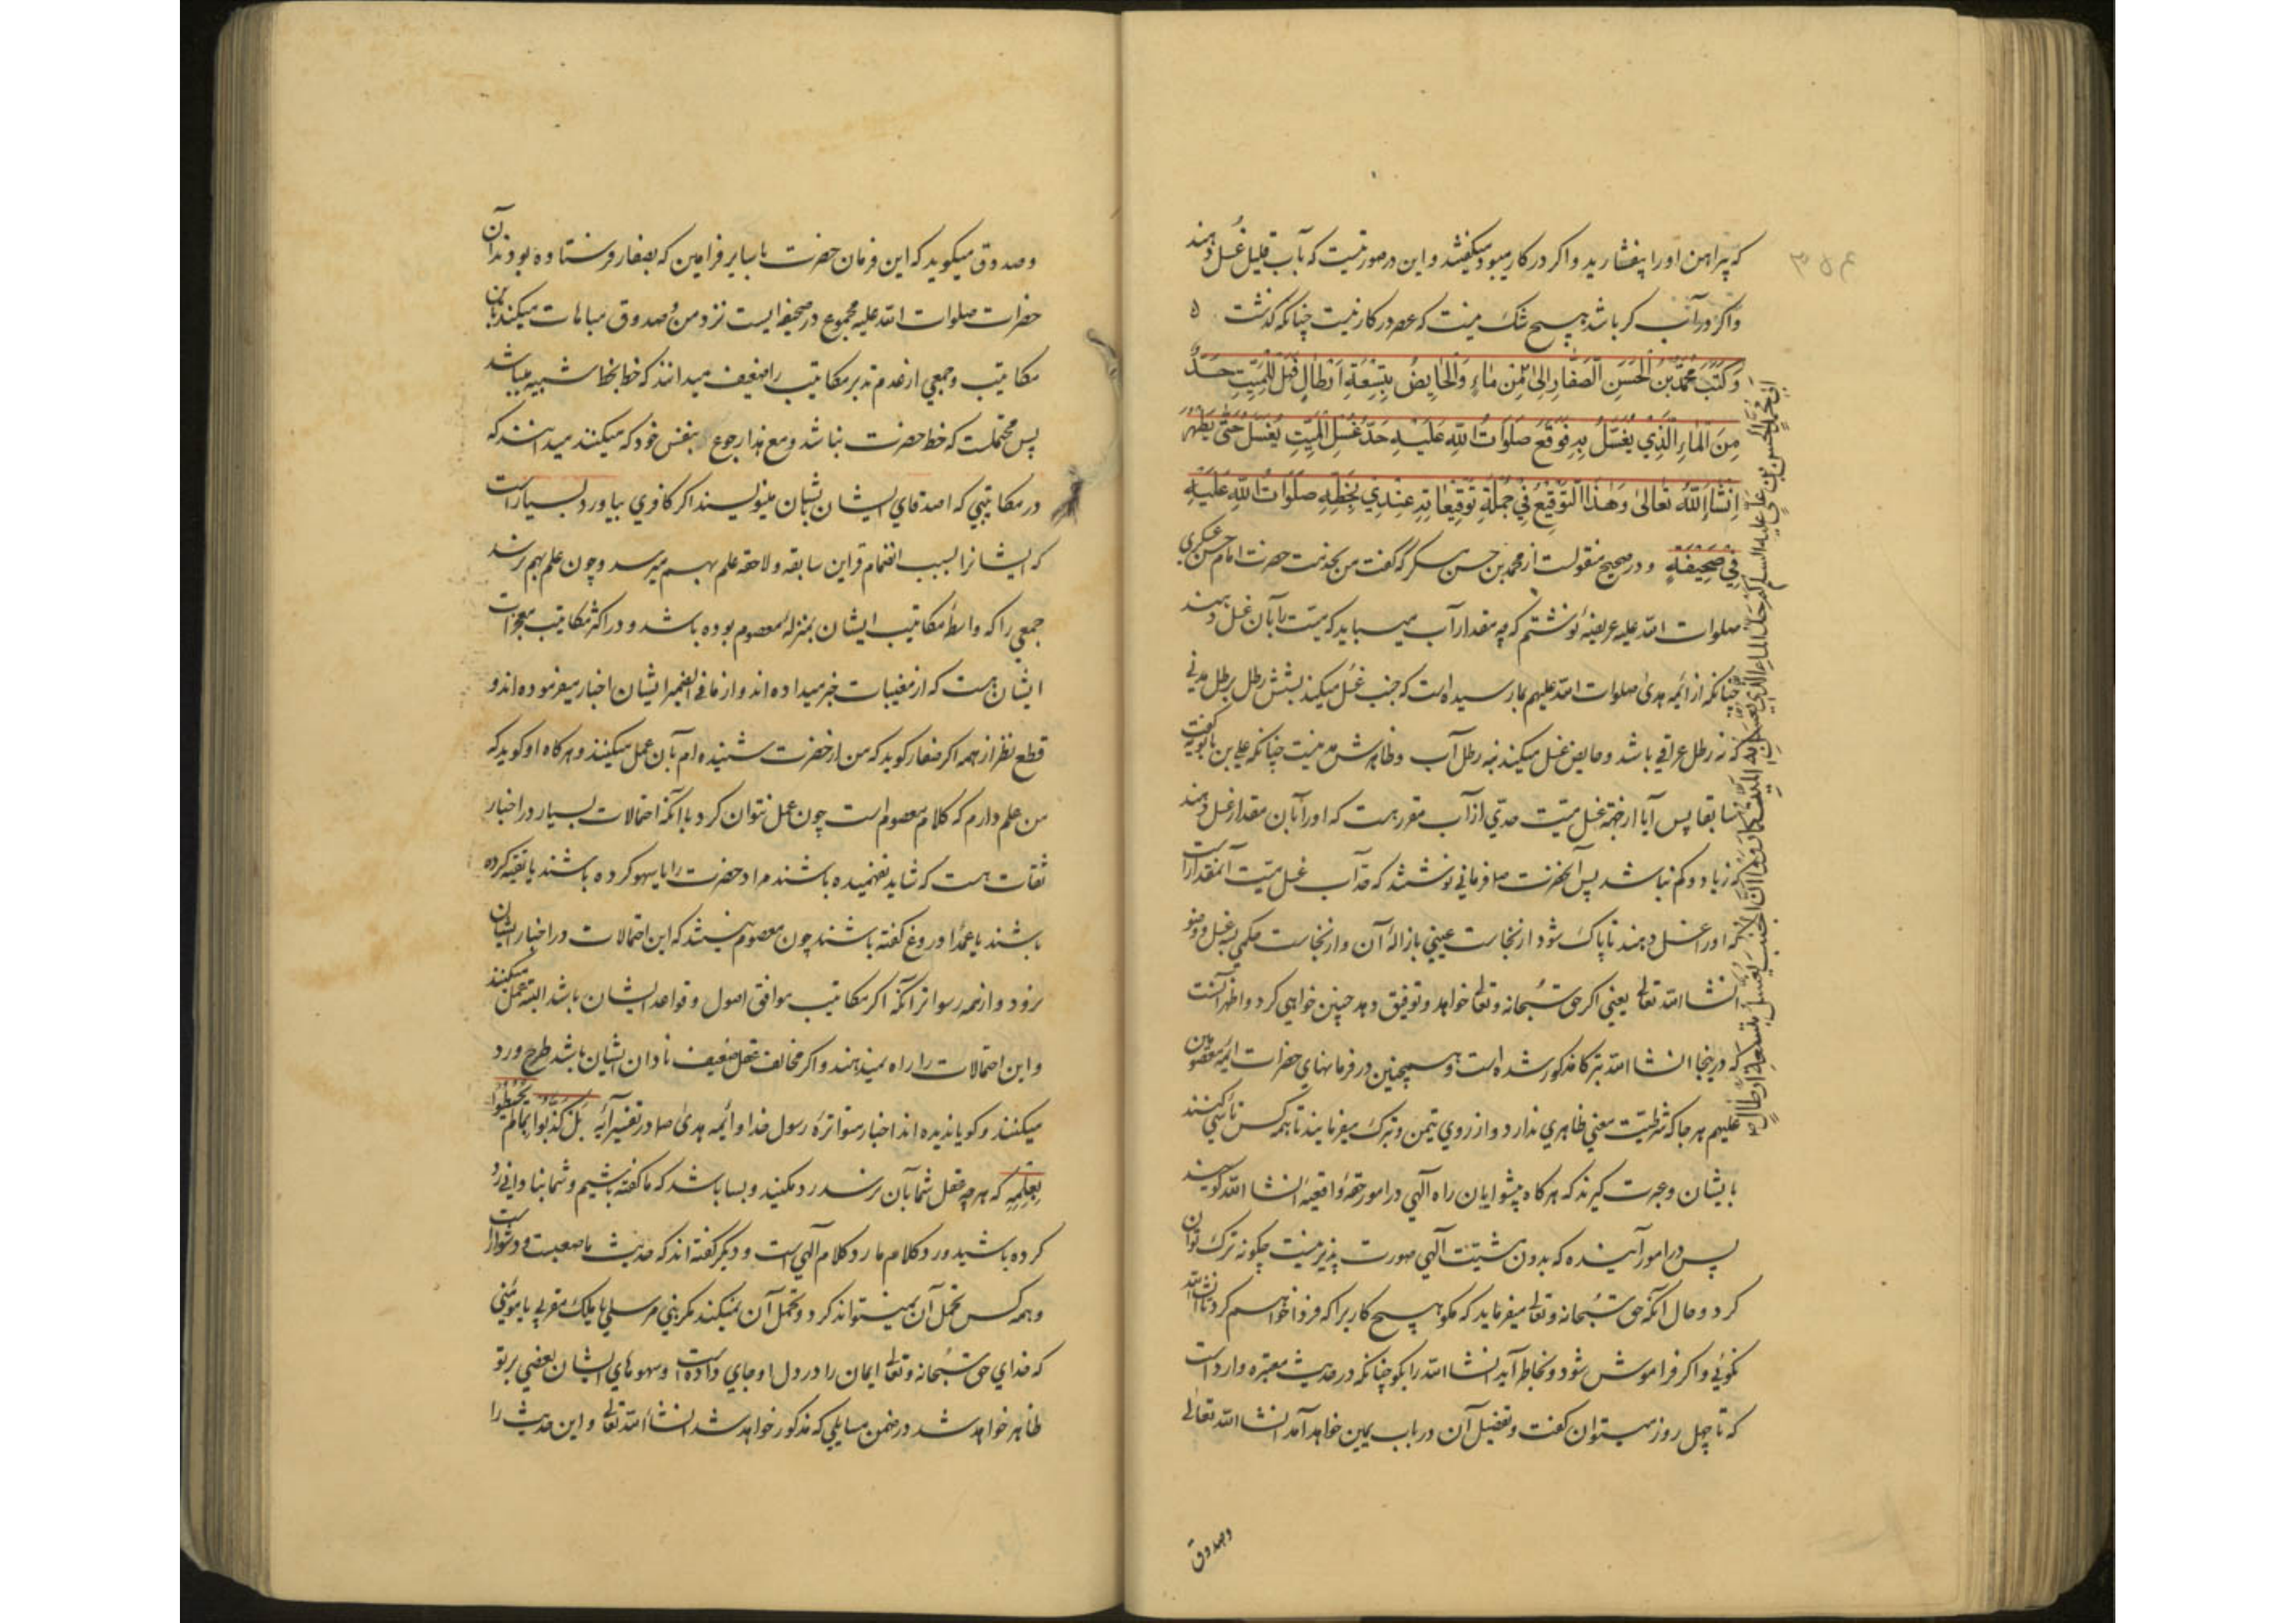 ۳۵۴
که پیراهن او را بیفشارید و اکر در کار میبود میکفتند و این در صورتیست که بآب قلیل غُسل دهند
و اکر در آب کر باشد هیچ شک نیست که عصر در کار نیست چنانکه کذشت ه
وَ كَتَبَ مُحَمَّدُ بْنُ الْحَسَنِ الصَّفَّارِ اِلىٰ مِنْ مٰاءٍ وَالْحٰايِضُ بِتِسْعَةِ اَرْطٰالٍ فَهَلْ لِلْمَيِّتِ حَدٌّ
مِنَ الْمٰاءِ الَّذِي يُغَسَّلُ بِهِ فَوَقَّعَ صَلَوٰاتُ اللّٰهِ عَلَيْهِ حَدُّ غُسْلِ الْمَيِّتِ يُغْسَلُ حَتّٰى يَطْهُرَ
اِنْشٰاءَ اللّٰهُ تَعٰالىٰ وَهٰذَا التَّوْقِيعُ فِي جُمْلَةِ تَوْقِيعٰاتِهِ عِنْدِي بِخَطِّهِ صَلَوٰاتُ اللّٰهِ عَلَيْهِ
فِي صَحِيفَةٍ و در صحیح منقولست از محمد بن حسن که گفت من بخدمت حضرت امام حسن عسکری
صلوات الله علیه عریضهٔ نوشتم که چه مقدار آب میباید که میت را بآن غسل دهند
چنانکه از ائمه هدی صلوات الله علیهم بما رسیده است که جنب غسل میکند بشش رطل برطل مدنی
که نه رطل عراقی باشد و حایض غسل میکند بنه رطل آب و ظاهرش مدنیست چنانکه علی بن بابویه گفت
سابقا پس آیا از جهة غسل میت حدی از آب مقرر هست که او را بآن مقدار غسل دهند
که زیاد و کم نباشد پس آنحضرت ص فرمانی نوشتند که حد آب غسل میت آنمقدار است
که او را غسل دهند تا پاک شود از نجاست عینی بازالهٔ آن و از نجاست حکمی بغسل و وضو
انشاالله تعالی یعنی اکر حق سُبحانه و تعالی خواهد و توفیق دهد چنین خواهی کرد و اظهر آنست
که در اینجا انشاالله تبرکا مذکور شده است و همچنین در فرمانهای حضرات ائمه معصومین
علیهم هر جا که شرطیت معنی ظاهری ندارد و از روی تیمن و تبرک میفرمایند تا همه کس تأسّی کنند
بایشان و عبرت کیرند که هرکاه پیشوایان راه آلهی در امور حقهٔ واقعیه انشاالله کویند
پس در امور آینده که بدون مشیت آلهی صورت پذیر نیست چکونه ترک توان
کرد و حال آنکه حق سُبحانه و تعالی میفرماید که مکو هیچ کاریرا که فردا خواهم کرد تا انشاالله
نکوئی و اکر فراموش شود و بخاطر آید انشاالله را بکو چنانکه در حدیث معتبره وارد است
که تا چهل روز میتوان کفت و تفصیل آن در باب یمین خواهد آمد انشاالله تعالی
ابی محمد الحسن بن علی علیه السلام کم حد الماء الذي یغسل به المیت کما رووا ان الجنب یغتسل بستة ارطال
و صدوق
و صدوق میکوید که این فرمان حضرت با سایر فرامین که بصفار فرستاده بودند آن
حضرات صلوات الله علیه مجموع در صحیفه ایست نزد من و صدوق مباهات میکند باین
مکاتیب و جمعی از عدم تدبر مکاتیب را ضعیف میدانند که خط بخط شبیه میباشد
پس محتملست که خط حضرت نباشد و مع هذا رجوع بنفس خود که میکنند میدانند که
در مکاتیبی که اصدقای ایشان بایشان مینویسند اکر کافری بیاورد بسیار است
که ایشانرا بسبب انضمام قراین سابقه و لاحقه علم بهم میرسد و چون علم بهم نرسد
جمعی را که واسطهٔ مکاتیب ایشان بمنزلهٔ معصوم بوده باشد و در اکثر مکاتیب معجزات
ایشان هست که از مغیبات خبر میداده اند و از ما فی الضمیر ایشان اخبار میفرموده اند و
قطع نظر از همه اکر صفار کوید که من از حضرت شنیده ام بآن عمل میکنند و هرکاه او کوید که
من علم دارم که کلام معصوم است چون عمل نتوان کرد با آنکه احتمالات بسیار در اخبار
ثقات هست که شاید نفهمیده باشند مراد حضرت را یا سهو کرده باشند یا تقیه کرده
باشند یا عمدًا دروغ کفته باشند چون معصوم نیستند که این احتمالات در اخبار ایشان
نرود و از همه رسواتر آنکه اکر مکاتیب موافق اصول و قواعد ایشان باشد البته عمل میکنند
و این احتمالات را راه نمیدهند و اکر مخالف عقل ضعیف نادان ایشان باشد طرح و رد
میکنند و کویا ندیده اند اخبار متواترهٔ رسول خدا و ائمه هدی ص در تفسیر آیه بَلْ كَذَّبُوا بِمٰا لَمْ يُحِيطُوا
بِعِلْمِهِ که هر چه عقل شما بآن نرسد رد مکنید و بسا باشد که ما کفته باشیم و شما بنادانی رد
کرده باشید و رد کلام ما رد کلام آلهی است و دیکر کفته اند که حدیث ما صعبست و دشوار است
و همه کس تحمل آن نمیتواند کرد و تحمل آن نمیکند مکر نبی مرسلی یا ملک مقربی یا مومنی
که خدای حق سُبحانه و تعالی ایمان را در دل او جای داده است و سهوهای ایشان بعضی بر تو
ظاهر خواهد شد در ضمن مسایلی که مذکور خواهد شد انشاالله تعالی و این حدیث را